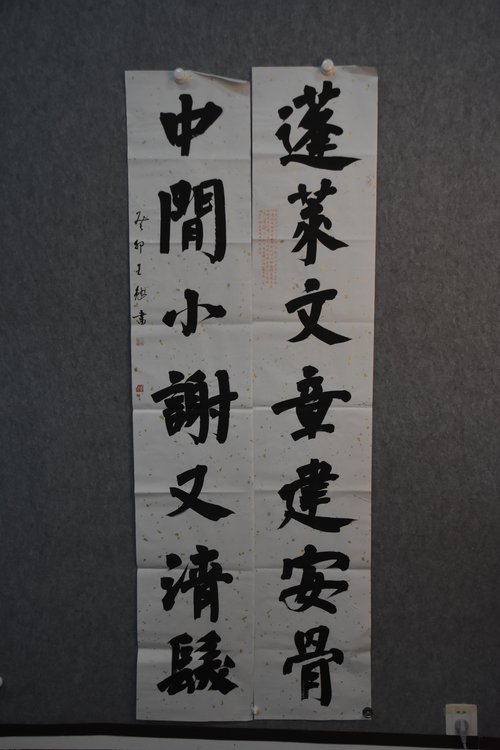 蓬萊文章建安骨
中間小謝又清髮
癸卯王書